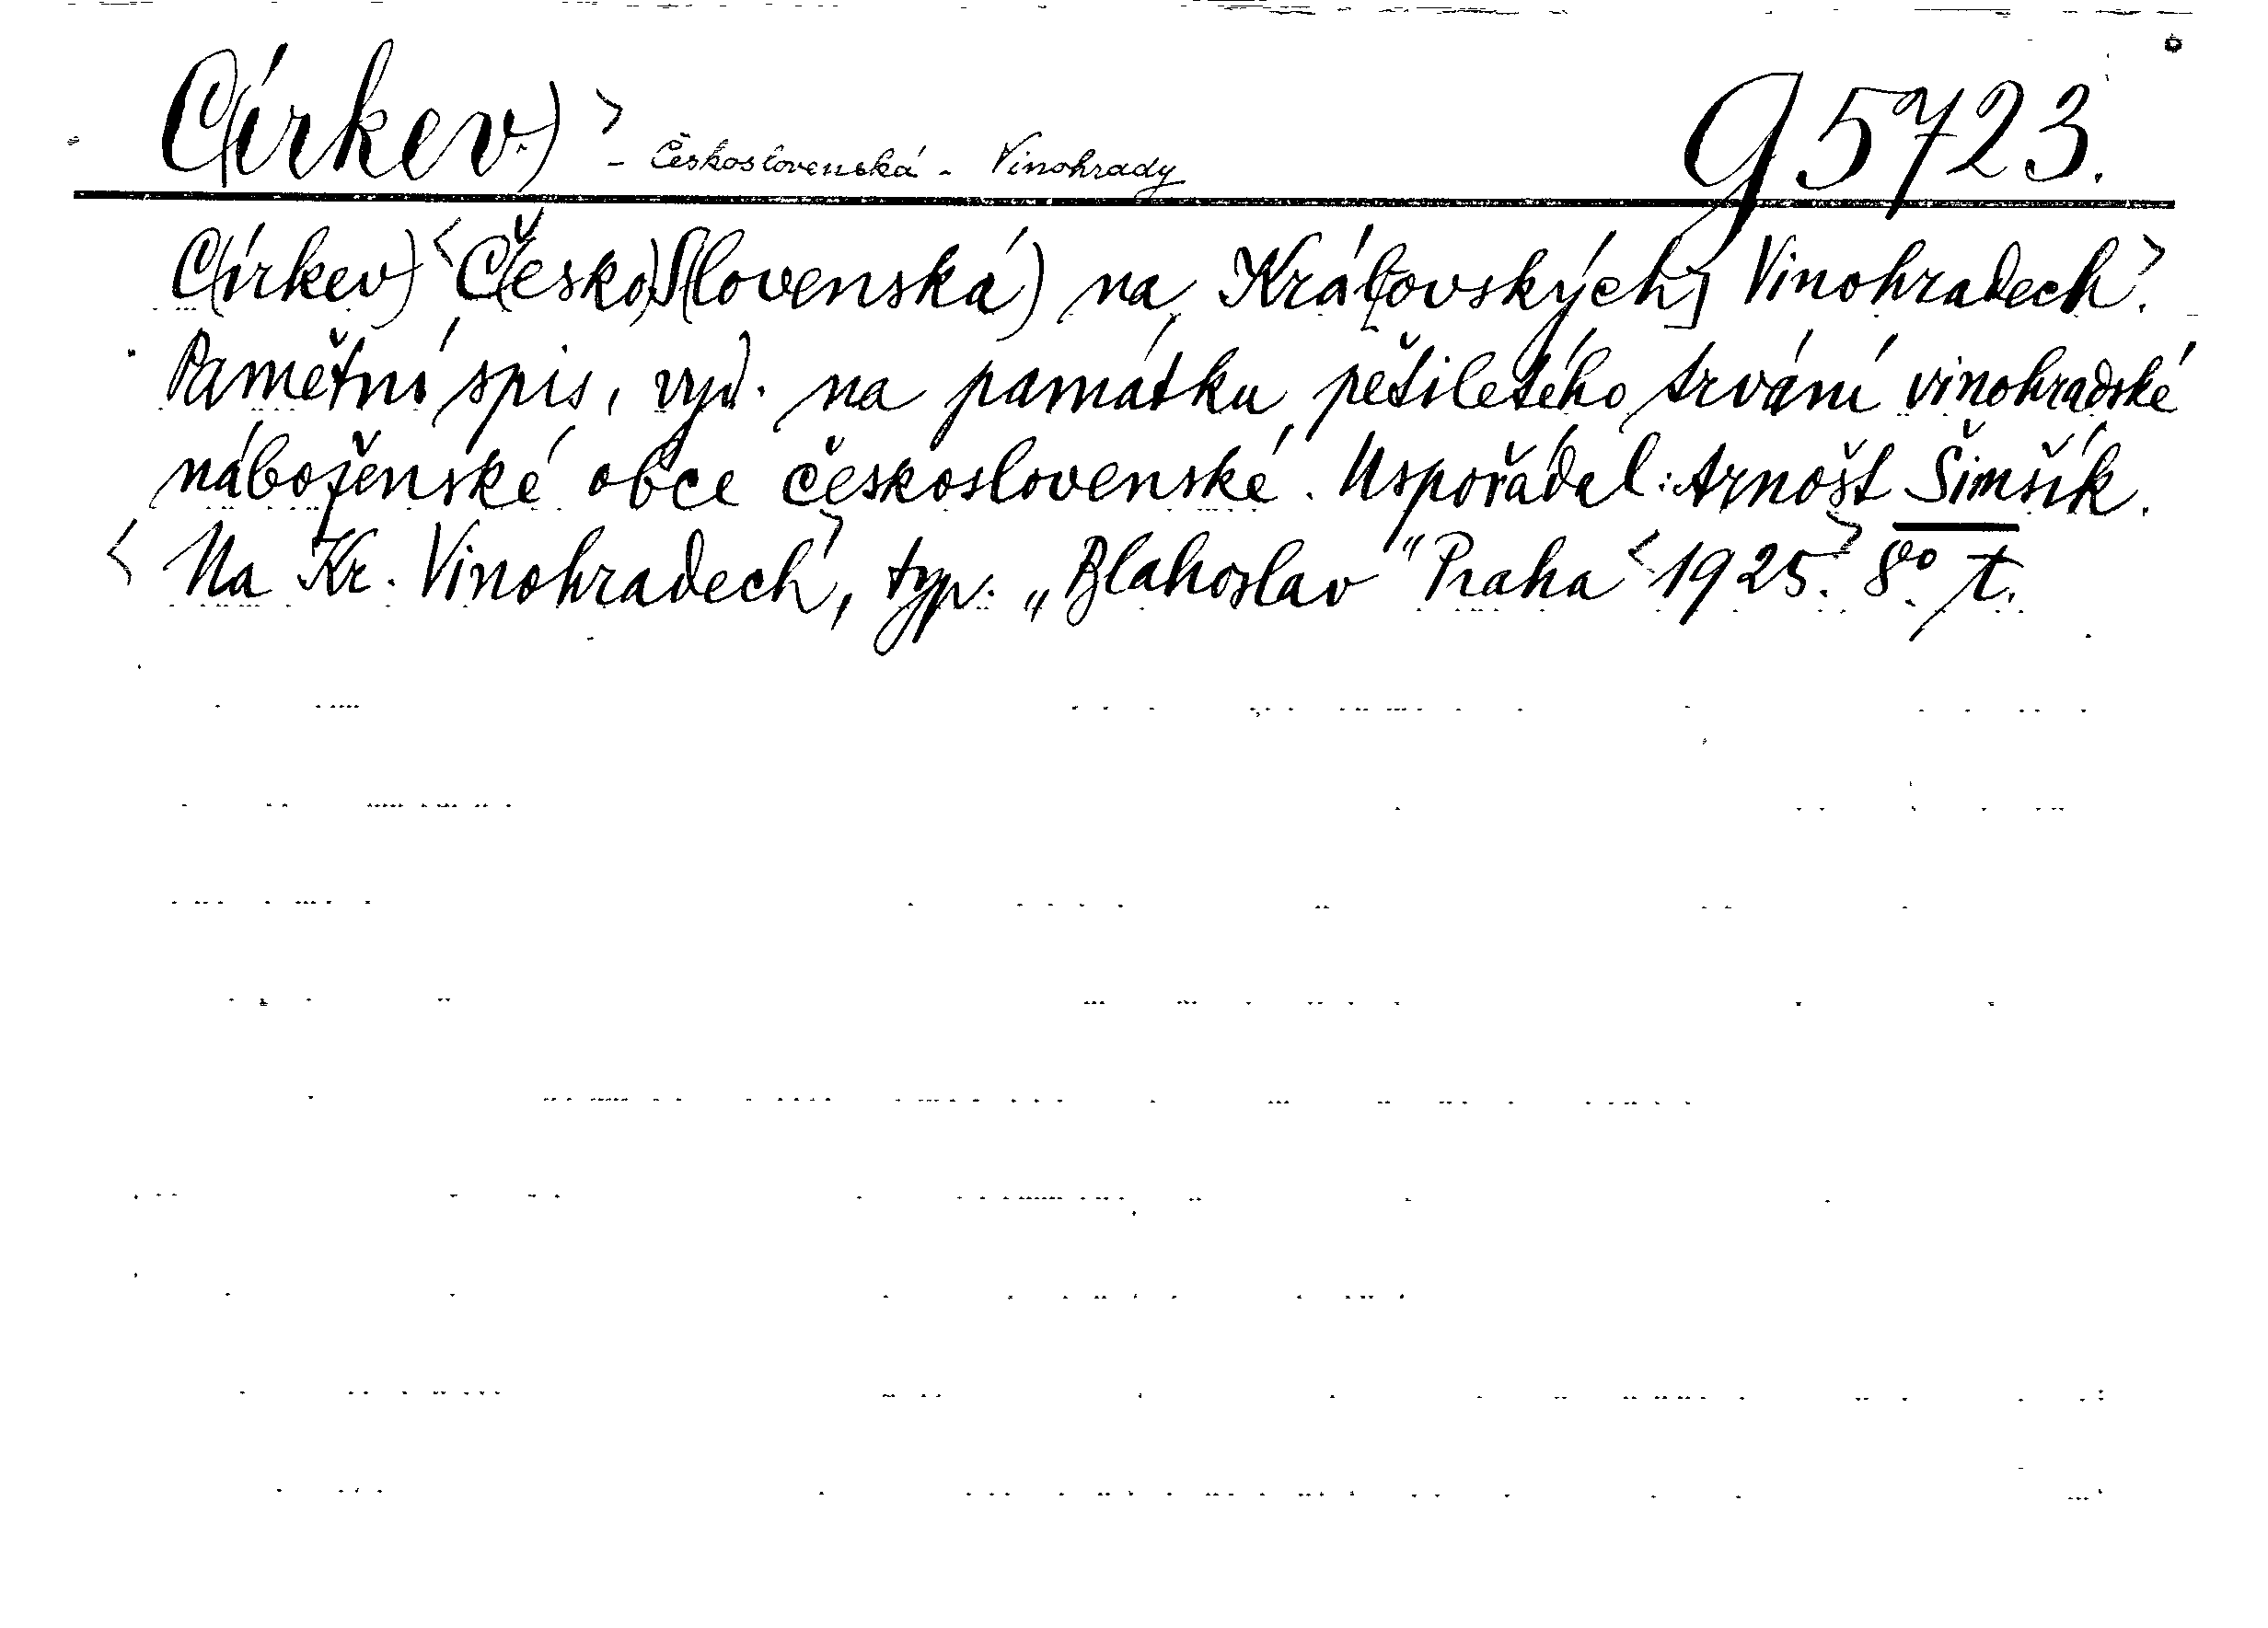 C(írkev.)> - Československá - Vinohrady g 5723.
C(írkev) <Č(esko)S(lovenská) na Král[ovských] Vinohradech>.
Pamětní spis, vyd. na památku pětiletého trvání vinohradské
náboženské obce československé. Uspořádal: Arnošt Šimšík.
<Na Kr. Vinohradech>, typ. „Blahoslav“ Praha <1925>. 8º. t.